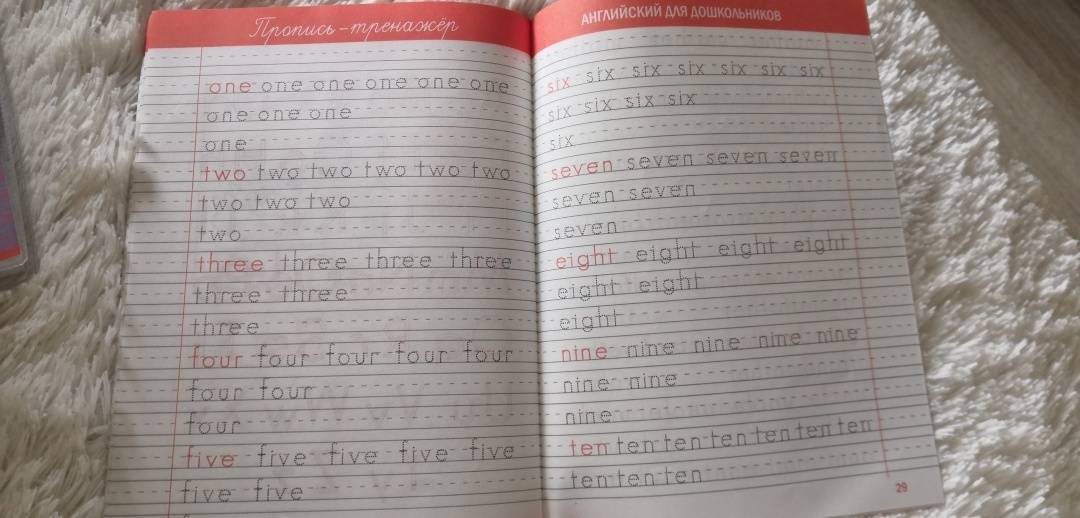 Пропись-тренажёр
one one one one one one
one one one
one
two two two two two two
two two two
two
three three three three
three three
three
four four four four four
four four
four
five five five five five
five five
АНГЛИЙСКИЙ ДЛЯ ДОШКОЛЬНИКОВ
six six six six six six six
six six six six
six
seven seven seven seven
seven seven
seven
eight eight eight eight
eight eight
eight
nine nine nine nine nine
nine nine
nine
ten ten ten ten ten ten ten
ten ten ten
29